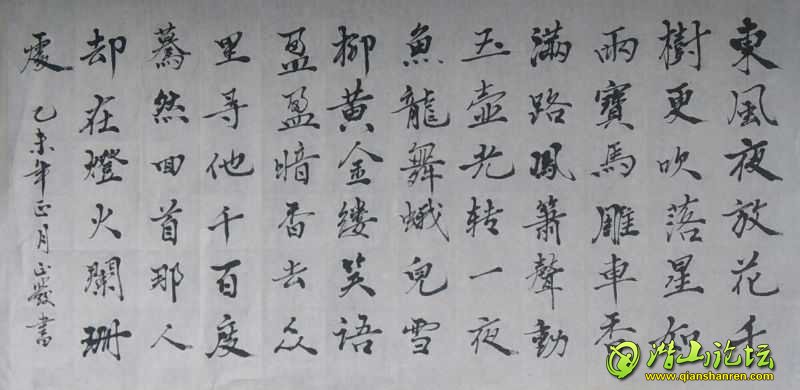 東風夜放花千
樹更吹落星如
雨寶馬雕車香
滿路鳳簫聲動
玉壺光转一夜
魚龍舞蛾兒雪
柳黄金缕笑語
盈盈暗香去众
里寻他千百度
驀然回首那人
却在燈火闌珊
處
乙未年正月正書
潜山论坛
www.qianshanren.com